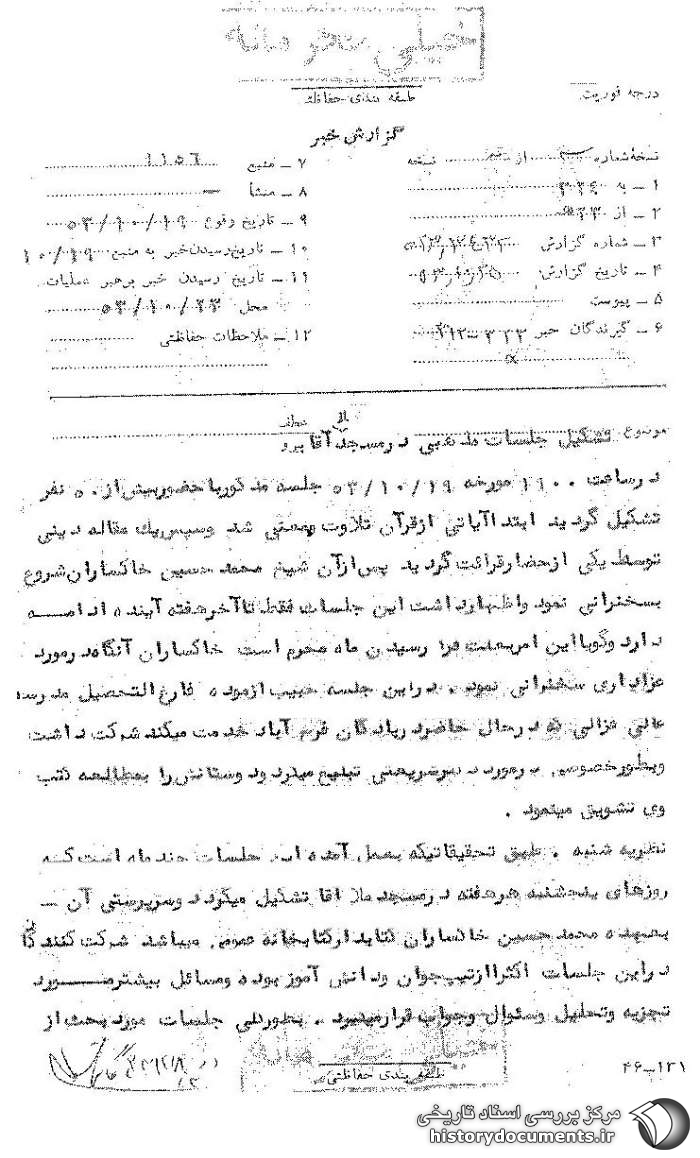 خیلی محرمانه
طبقه بندی حفاظتی
درجه فوریت
گزارش خبر
نسخهٔ شماره از نسخه
۱ ـ به ۳۲۴
۲ ـ از
۳ ـ شماره گزارش
۴ ـ تاریخ گزارش
۵ ـ پیوست
۶ ـ گیرندگان خبر ۳۲۲ـ۳۱۲
۷ ـ منبع ۱۱۵۶
۸ ـ منشأ ـ
۹ ـ تاریخ وقوع ۵۳/۱۰/۱۹
۱۰ ـ تاریخ رسیدن خبر به منبع ۱۰/۱۹
۱۱ ـ تاریخ رسیدن خبر برهبر عملیات
محل ۵۳/۱۰/۲۳
۱۲ ـ ملاحظات حفاظتی
موضوع تشکیل جلسات مذهبی در مسجد آقا
در ساعت ۱۹۰۰ مورخه ۵۳/۱۰/۱۹ جلسه مذکور با حضور بیش از ۵۰ نفر
تشکیل گردید ابتدا آیاتی از قرآن تلاوت و معنی شد وسپس یك مقاله دینی
توسط یکی از حضار قرائت گردید پس از آن شیخ محمد حسین خاکساران شروع
بسخنرانی نمود واظهار داشت این جلسات فقط تا آخر هفته آینده ادامـــه
دارد وگویا این امر بعلت فرا رسیدن ماه محرم است خاکساران آنگاه در مورد
عزاداری سخنرانی نمود . در این جلسه حبیب ازموده فارغ التحصیل مدرسه
عالی که در حال حاضر در پادگان خرم آباد خدمت میکند شرکت داشت
وبطور خصوصی در مورد دکتر شریعتی تبلیغ میکرد ودوستانش را بمطالعه کتب
وی تشویق مینمود .
نظریه شنبه . طبق تحقیقاتیکه بعمل آمده این جلسات چند ماه است کـه
روزهای پنجشنبه هر هفته در مسجد ملا اقا تشکیل میگردد وسرپرستی آن ـ
بعهده محمد حسین خاکساران کتابدار کتابخانه عمومی میباشد شرکت کنندگان
در این جلسات اکثرا از تیپ جوان ودانش آموز بوده ومسائل بیشتر مــورد
تجزیه وتحلیل وسئوال وجواب قرار میگیرد . بطور کلی جلسات مورد بحث از
خیلی محرمانه
طبقه بندی حفاظتی
۱۲۱ـ۴۶
مرکز بررسی اسناد تاریخی
historydocuments.ir